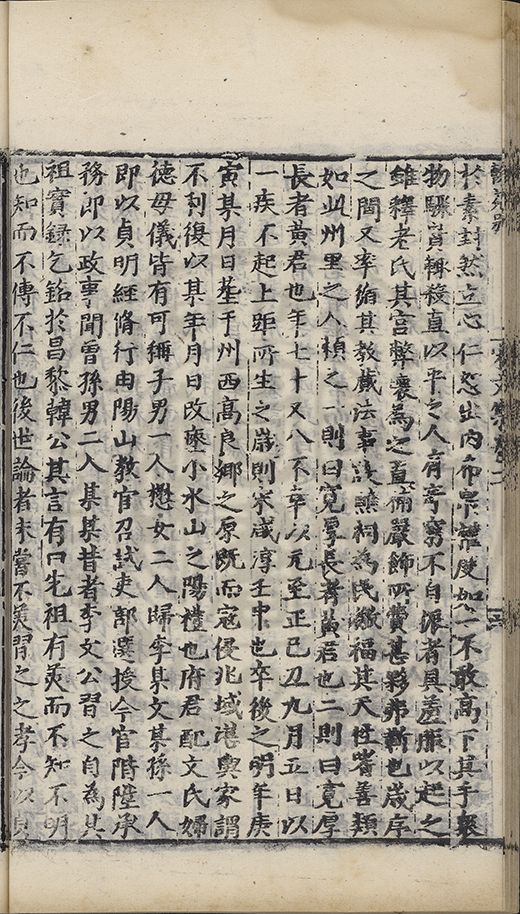 於素封然立心仁恕出內布泉體度如一不敢高下其手裂
物驟貴輒發直以平之人有窮不自振者具羞服以起之
雖釋老氏其宮弊壞為之直備嚴飾所費甚夥弗靳也歲序
之間又率循其教嚴法事設醮祠為民徼福其天性嗜善類
如此州里之人槓之一則曰寬厚長者黃君也二則曰寬厚
長者黃君也年七十又八不幸以元至正己丑九月五日以
一疾不起上距所生之歲則宋咸淳壬申也卒後之明年庚
寅某月日塟于州西高良鄉之原既而寇侵兆域堪輿家謂
不利復以某年月日改塟小水山之陽禮也府君配文氏婦
德母儀皆有可稱子男一人懋女二人歸李某文某孫一人
即以貞明經脩行由陽山教官召試吏部選授今官階陞承
務即以政事聞曾孫男二人某某昔者李文公習之自為其
祖實錄乞銘於昌黎韓公其言有曰先祖有羙而不知不明
也知而不傳不仁也後世論者未嘗不羙習之之孝今以貞